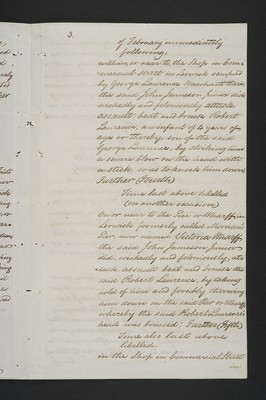 3.
of February immediately
following,
within, or near to the Shop in Com-
mercial Street in Lerwick occupied
by George Laurence Merchant there,
the said John Jameson junior did,
wickedly and feloniously attack
assault beat and bruise Robert
Laurence, an infant of 4 years of
age or thereby, son of the said
George Laurence, by striking him
a severe blow on the head with
a stick so as to knock him down;
Further (Fourth)
Time last above libelled
(on another occasion)
On or near to the Pier or Wharf in
Lerwick formerly called Morrison's
Pier, now named Victoria Wharf,
the said John Jameson junior
did, wickedly and feloniously, at-
tack assault beat and bruise the
said Robert Laurence, by taking
hold of him and forcibly throwing
him down on the said Pier or Wharf
whereby the said Robert Laurence's
head was bruised: Further (Fifth)
Time also last above
libelled,
in the Shop in Commercial Street